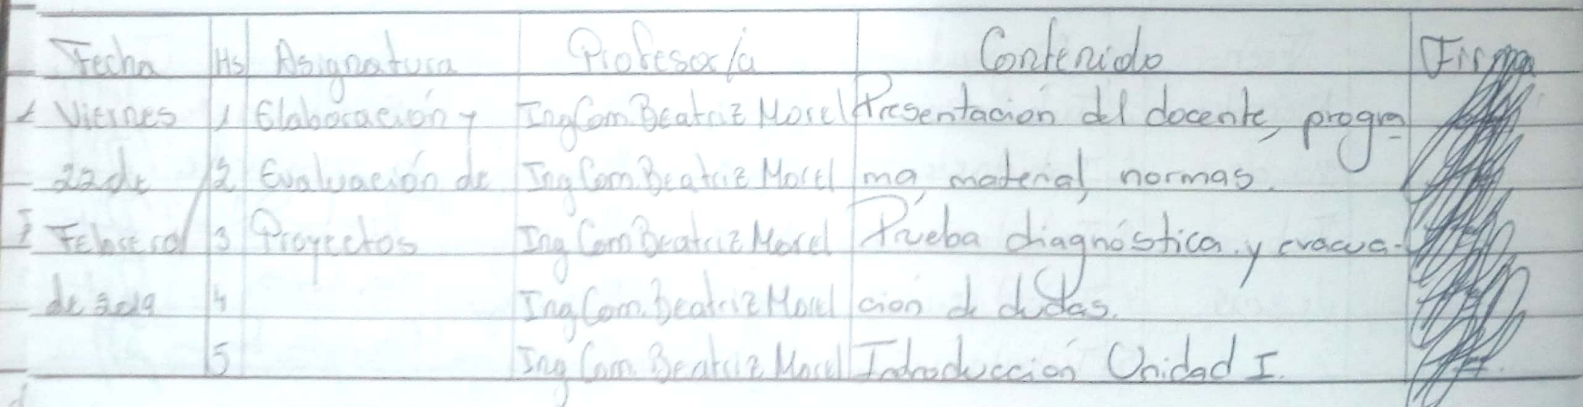 Fecha Hs Asignatura Profesor/a Contenido Firma
Viernes 1 Elaboración y Ing Com. Beatriz Morel Presentación del docente, progra-
22 de 2 Evaluación de Ing Com. Beatriz Morel ma, material, normas.
Febrero 3 Proyectos Ing Com Beatriz Morel Prueba diagnóstica y evacua-
de 2019 4 Ing Com. Beatriz Morel ción de dudas.
5 Ing Com. Beatriz Morel Introducción Unidad I.